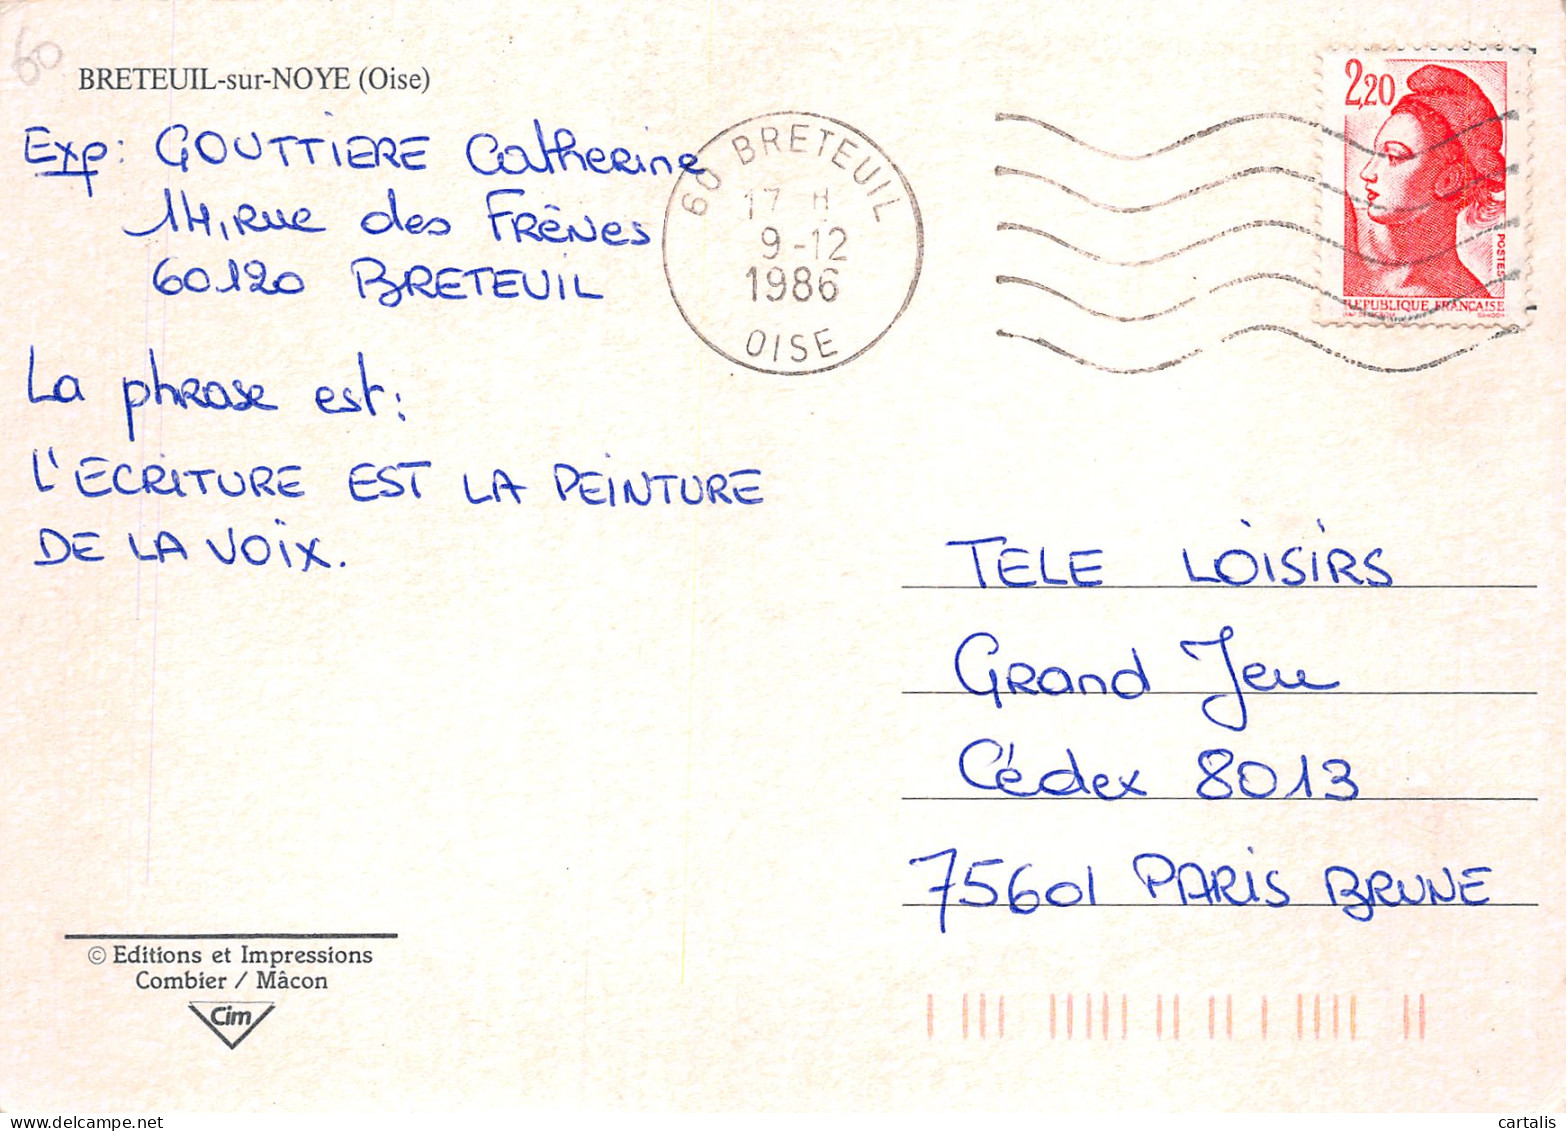 60
BRETEUIL-sur-NOYE (Oise)
Exp: GOUTTIERE Catherine
14, rue des Frênes
60120 BRETEUIL
La phrase est:
L'ECRITURE EST LA PEINTURE
DE LA VOIX.
60 BRETEUIL
17 H
9-12
1986
OISE
2,20
POSTES
REPUBLIQUE FRANÇAISE
TELE LOISIRS
Grand Jeu
Cédex 8013
75601 PARIS BRUNE
© Editions et Impressions
Combier / Mâcon
Cim
cartalis